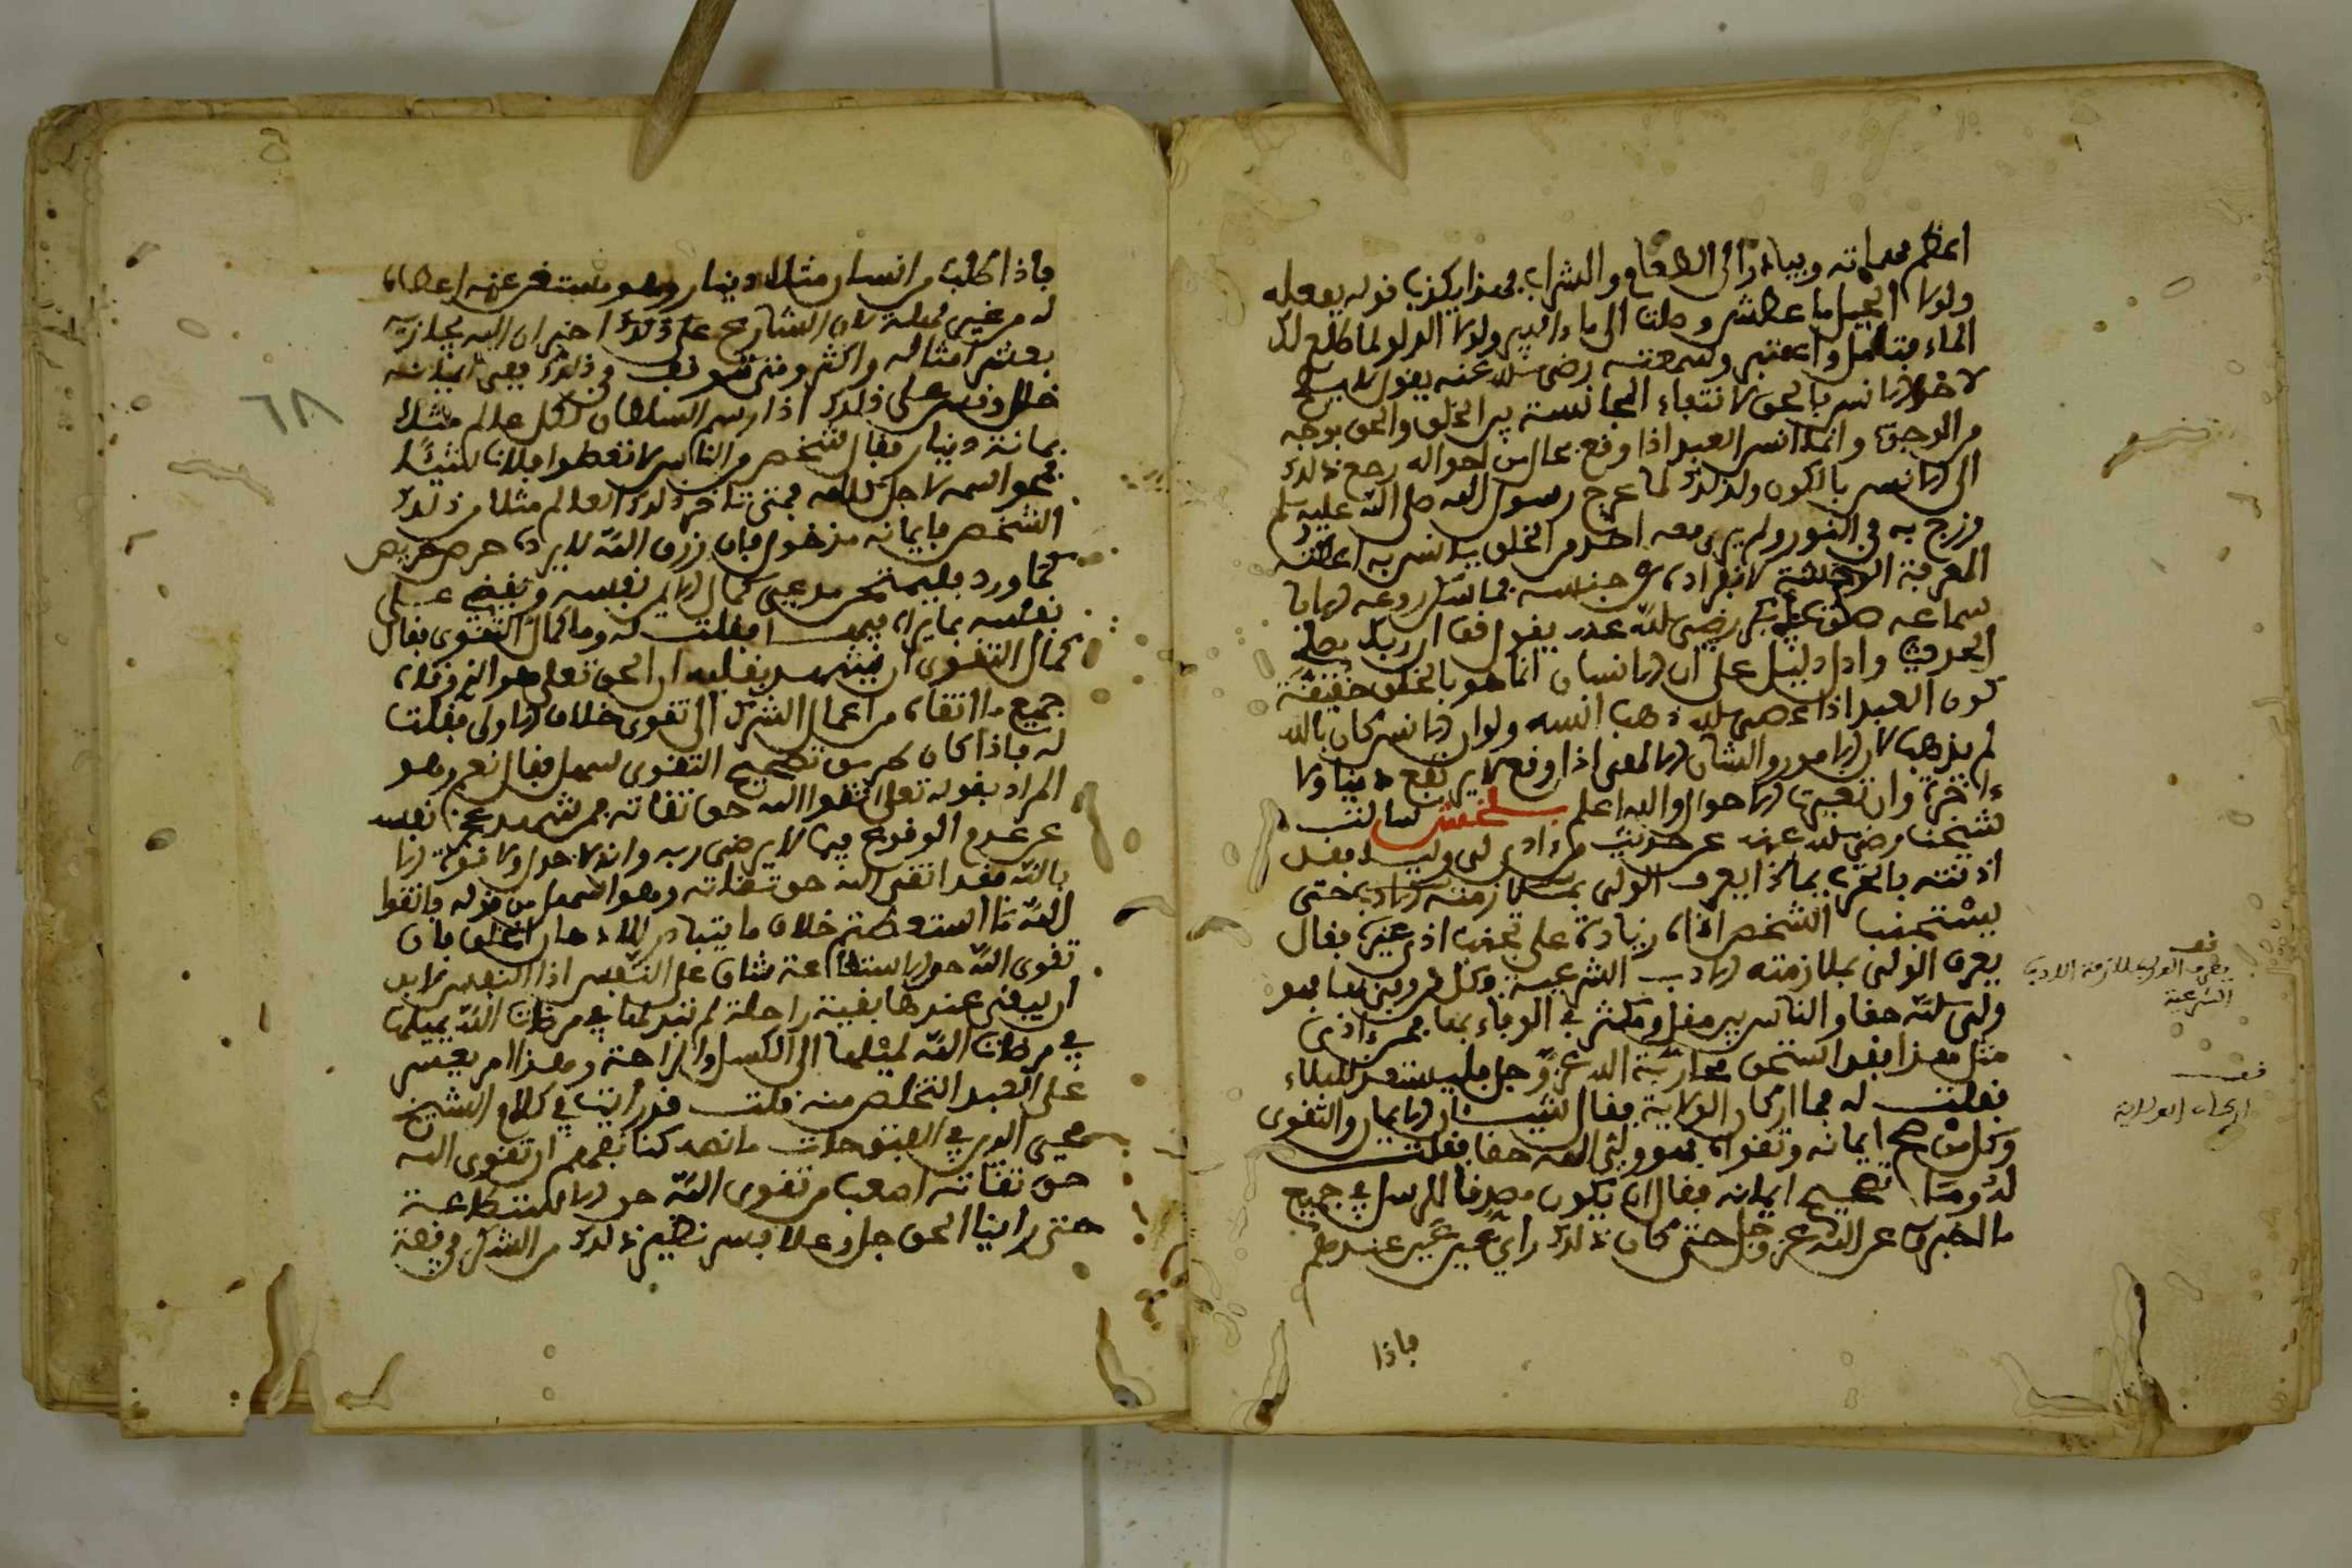 اعظم مهماته ويبادر الى الطعام والشراب فهذا يكذب قوله بفعله
ولولا الحبل ما عطش وصلت الى ماء البير ولولا الدلو لما طلع لك
الماء فتامل واعتبر وسمعته رضي الله عنه يقول لا يصح
لاحد الانس بالحق لانتفاء المجانسة بين الخلق والحق بوجه
من الوجوه وانما انس العبد اذا وقع بحال من احواله رجع ذلك
الى الانس بالكون ولذلك لما عرج رسول الله صلى الله عليه وسلم
وزج به في النور ولم ير معه احد من الخلق يانس به اعطته
المعرفة الوحشة لانفراده عن جنسه فما سكن روعه الا بـ
سماعه صوت ابي بكر رضي الله عنه يقول قف ان ربك يصلي
الحديث وادل دليل على ان الانسان انما هو بالخلق حقيقة
كون العبد اذا عصى الله ذهب انسه ولو ان الانس كان بالله
لم يذهب لان الامور والشان الالهي اذا وقع لا يرتفع دنيا ولا
ءاخرة وان تغيرت الاحوال والله اعلم سالت
شيخنا رضي الله عنه عن حديث من ءاذى لي وليا فقد
اذنته بالحرب بماذا يعرف الولي بملازمته الادب حتى
يستجنب الشخص اذاه زيادة على تجنب اذى غيره فقال
يعرف الولي بملازمته الاداب الشرعية وكل من وفى بها فهو
ولي لله حقا والناس بين مقل ومكثر في الوفاء بها فمن ءاذى
مثل هذا فقد استحق محاربة الله عز وجل فليستعد للبلاء
فقلت له فما اركان الولاية فقال شيئان الايمان والتقوى
وكل من صح ايمانه وتقواه فهو ولي الله حقا فقلت
له وما تصحيح ايمانه فقال ان يكون مصدقا للرسل في جميع
ما اخبروا عن الله عز وجل حتى كان ذلك راي عين عندهم
فاذا
قف
يعرف الولي بملازمة الاداب
الشرعية
قف
اركان الولاية
فاذا طلب من انسان مثلا دينار وهو مستغن عنه اعطاه
له من غير مهلة لان الشارع على ذلك اخبر ان الله يجازيه
بعشر امثاله واكثر ومتى توقف في ذلك ففي ايمانه
خلل وقس على ذلك اذا رسم السلطان لكل عالم مثلا
بمائة دينار فقال شخص من الناس لا تعطوا فلانا شيئا
فمحوا اسمه لاجل كلامه فمتى تاخر ذلك العالم مثلا من ذلك
الشخص فايمانه مدخول فان رزق الله لا يرده حرص حريص
كما ورد فليمتحن مدعي كمال الايمان نفسه ويقض على
نفسه بما يراه فيها فقلت له وما كمال التقوى فقال
كمال التقوى ان يشهد بقلبه ان الحق تعلى هو الذي وقاه
جميع ما اتقاه من اعمال الشرك الى تقوى خلاف الاولى فقلت
له فاذا كان كل من تصحيح التقوى سهل فقال نعم وهو
المراد بقوله تعلى اتقوا الله حق تقاته فمن شهد عجز نفسه
عن عدم الوقوع فيما لا يرضي ربه وانه لا حول ولا قوة الا
بالله فقد اتقى الله حق تقاته وهو اسهل من قوله فاتقوا
الله ما استطعتم خلاف ما يتبادر للاذهان الخلق فان
تقوى الله حق الاستطاعة شاق على النفس اذ النفس لا بد
ان يبقى عندها بقية راحة لم تبذلها في مرضات الله يميلها
في مرضات الله لميلها الى الكسل والراحة وهذا امر يعسر
على العبد التخلص منه قلت قد رأيت في كلام الشيخ
محيي الدين في الفتوحات ما نصه كنا نفهم ان تقوى الله
حق تقاته اصعب من تقوى الله حق الاستطاعة
حتى راينا الحق جل وعلا فسر نظير ذلك من الشكر في قصة
٦٨